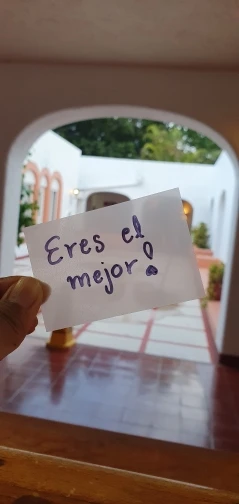 Eres el
mejor!